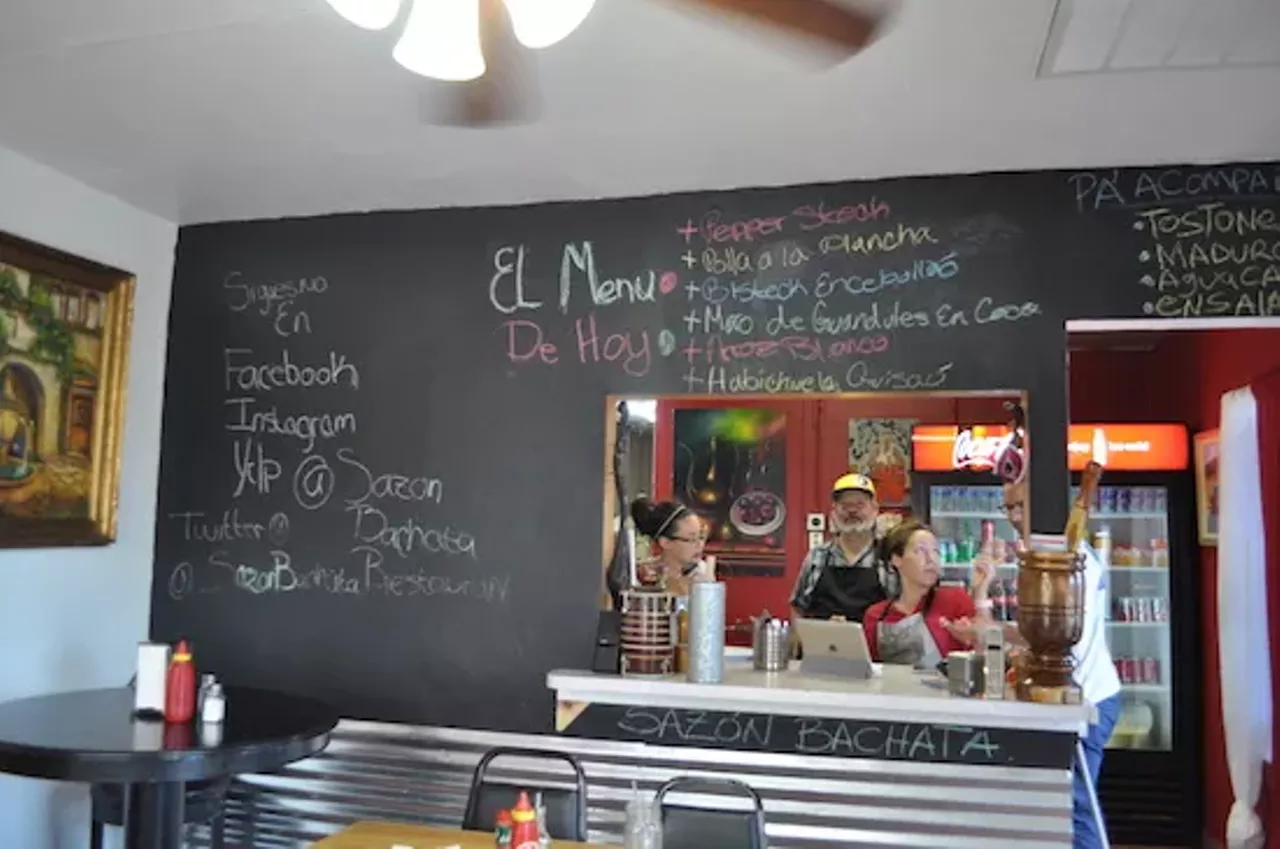 Siguesno
En
Facebook
Instagram
Yelp @ Sazon
Bachata
Twitter @
@ SazonBachataRestaurant
EL Menu
De Hoy
+ Pepper Steak
+ Polla a la Plancha
+ Bisteck Encebollaó
+ Moro de Guandules En Coco
+ Arroz Blanco
+ Habichuela Guisaó
PA' ACOMPA
• TOSTONE
• MADURO
• AguaCA
• ENSALA
Coca
SAZÓN BACHATA